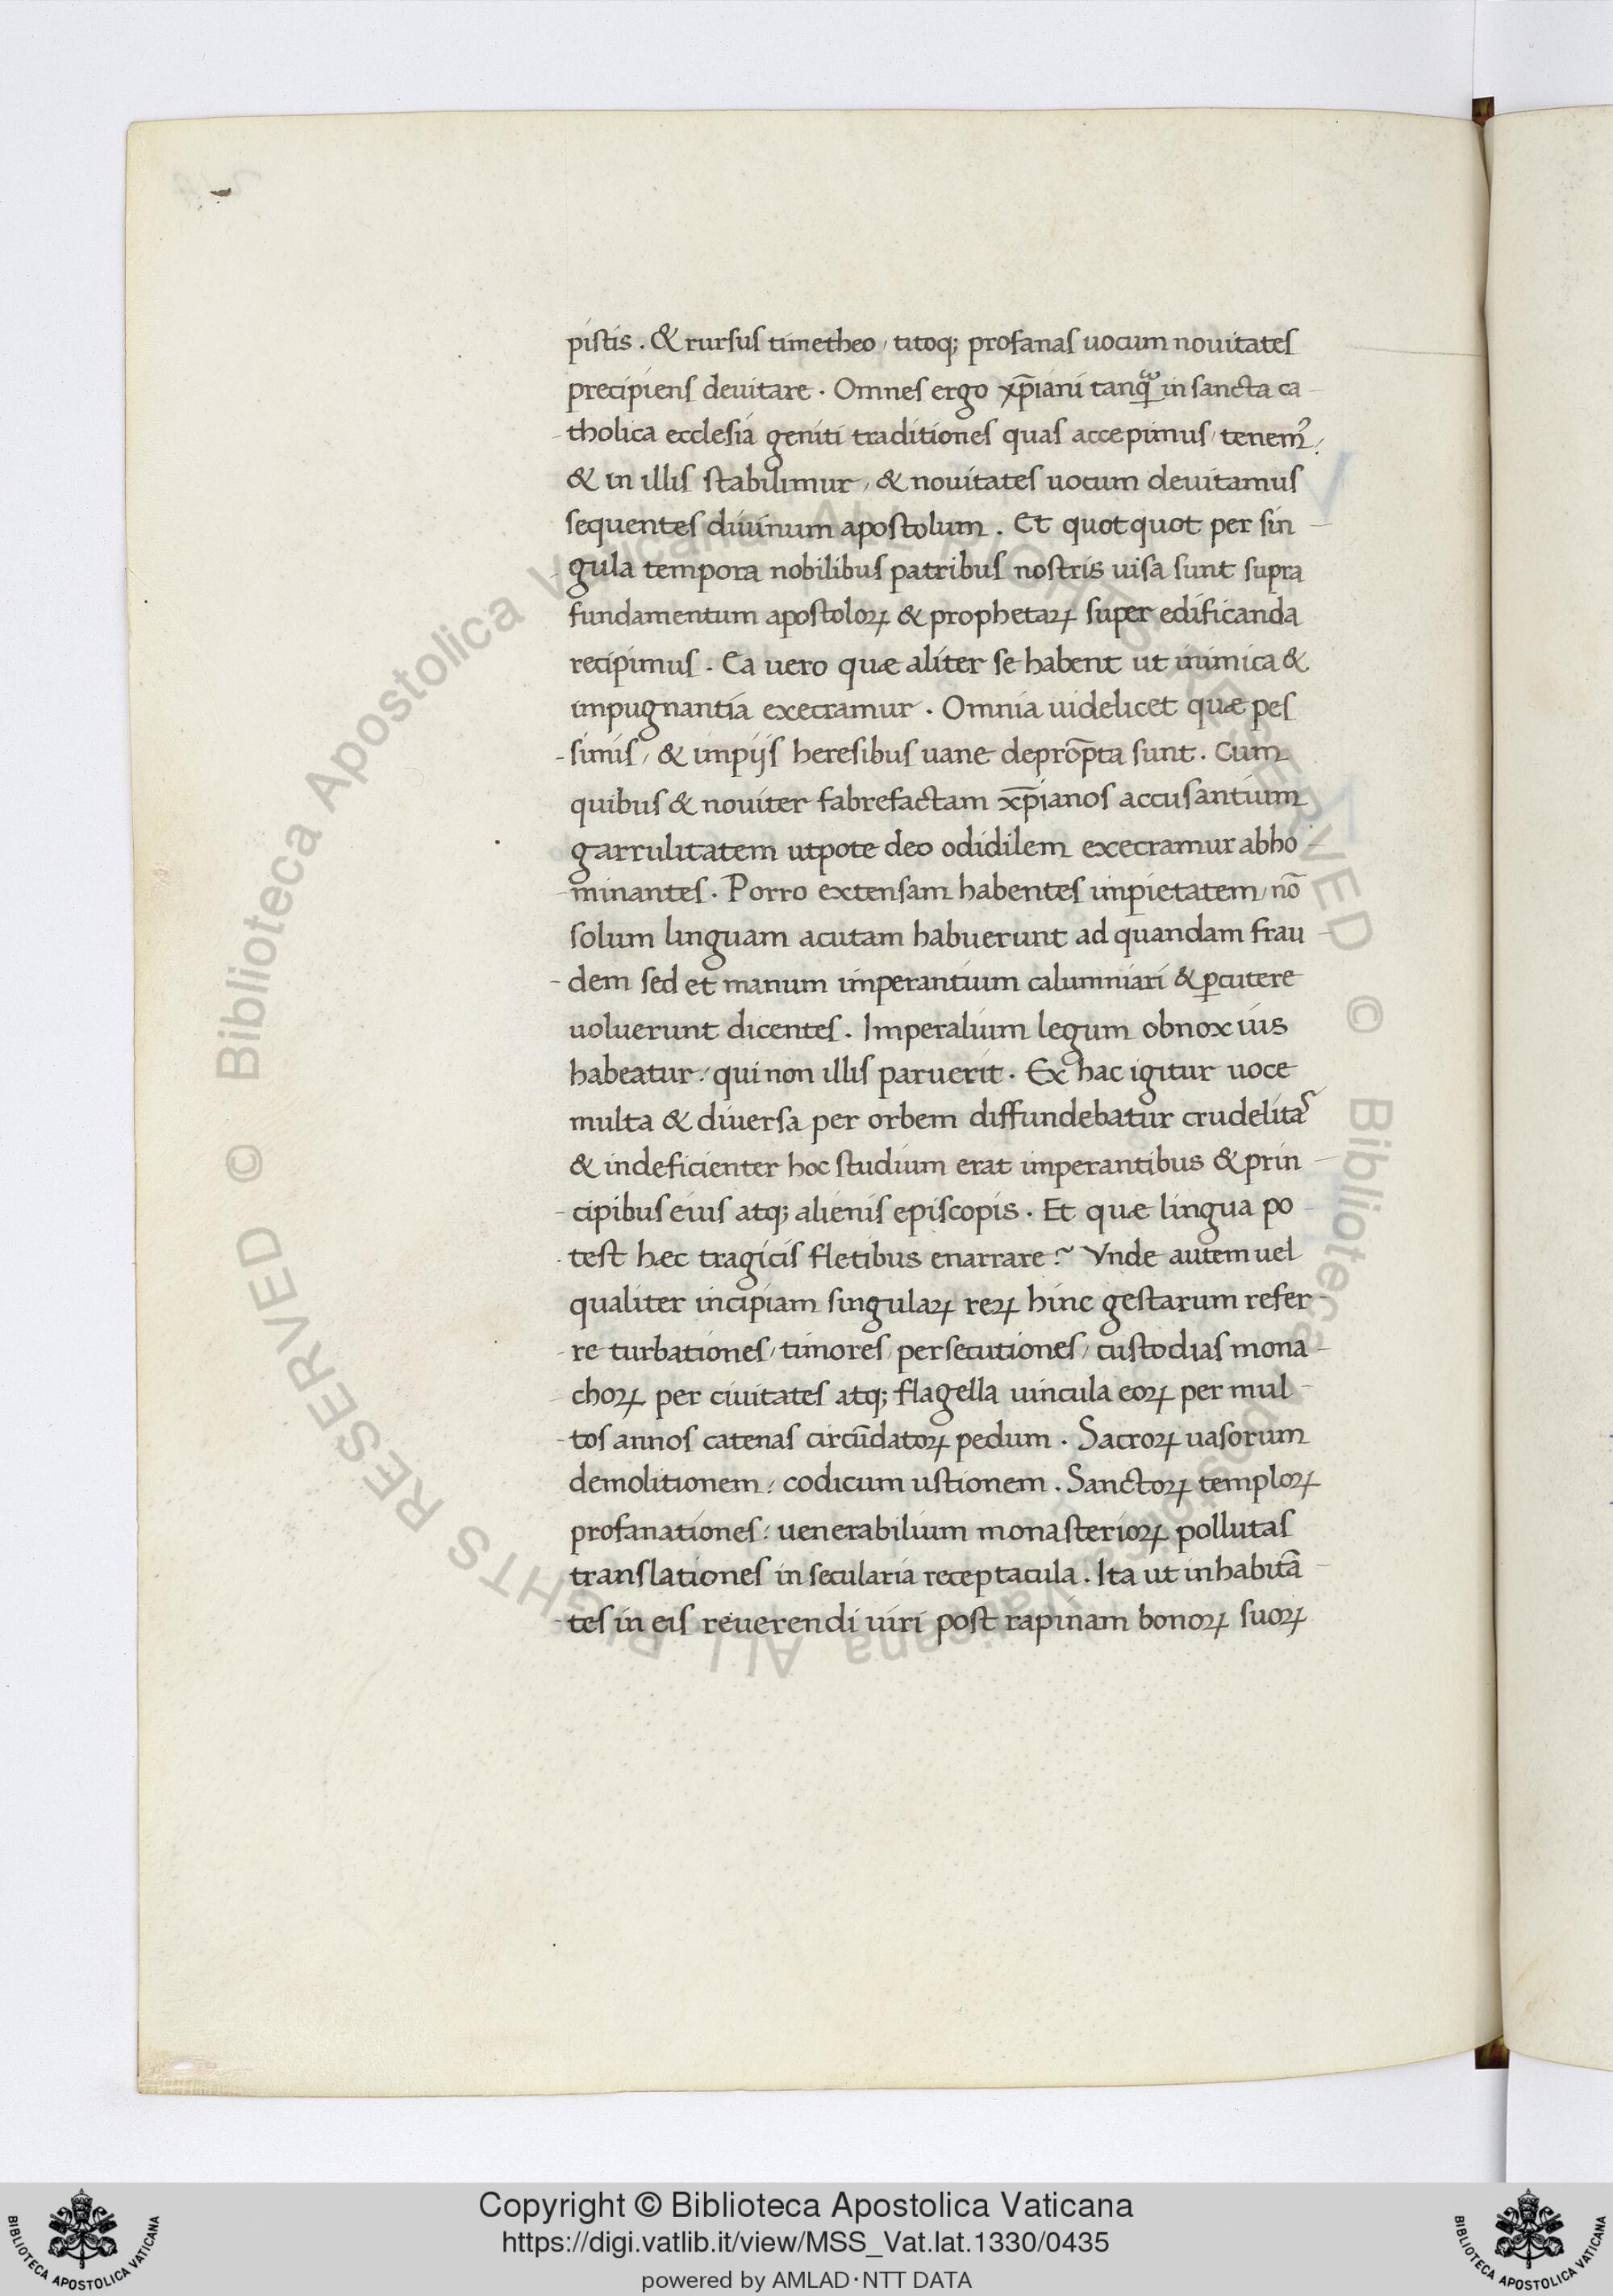 pistis . & rursus timetheo, titoq; profanas uocum nouitates
precipiens deuitare . Omnes ergo xp̄iani tanq̃ in sancta ca-
-tholica ecclesia geniti traditiones quas accepimus, tenemꝰ:
& in illis stabilimur, & nouitates uocum deuitamus
sequentes diuinum apostolum . Et quotquot per sin-
-gula tempora nobilibus patribus nostris uisa sunt supra
fundamentum apostoloꝝ & prophetaꝝ super edificanda
recipimus . Ea uero quæ aliter se habent ut inimica &
impugnantia execramur . Omnia uidelicet quæ pes
-simis, & impijs heresibus uane deprop̄ta sunt . Cum
quibus & nouiter fabrefactam xp̄ianos accusantium
garrulitatem utpote deo odidilem execramur abho-
-minantes . Porro extensam habentes impietatem, nō
solum linguam acutam habuerunt ad quandam frau-
-dem sed et manum imperantium calumniari & ꝑcutere
uoluerunt dicentes . Imperalium legum obnoxius
habeatur: qui non illis paruerit . Ex hac igitur uoce
multa & diuersa per orbem diffundebatur crudelitas
& indeficienter hoc studium erat imperantibus & prin-
-cipibus eius atq; alienis episcopis . Et quæ lingua po-
-test hæc tragicis fletibus enarrare? Vnde autem uel
qualiter incipiam singulaꝝ reꝝ hinc gestarum refer-
-re turbationes, timores, persecutiones, custodias mona-
-choꝝ per ciuitates atq; flagella uincula eoꝝ per mul-
-tos annos catenas circūdatoꝝ pedum . Sacroꝝ uasorum
demolitionem: codicum ustionem . Sanctoꝝ temploꝝ
profanationes: uenerabilium monasterioꝝ pollutas
translationes in secularia receptacula . Ita ut inhabitā-
-tes in eis reuerendi uiri post rapinam bonoꝝ suoꝝ
© Biblioteca Apostolica Vaticana ALL RIGHTS RESERVED © Biblioteca Apostolica Vaticana ALL RIGHTS RESERVED
Copyright © Biblioteca Apostolica Vaticana
https://digi.vatlib.it/view/MSS_Vat.lat.1330/0435
powered by AMLAD·NTT DATA
BIBLIOTECA APOSTOLICA VATICANA
BIBLIOTECA APOSTOLICA VATICANA